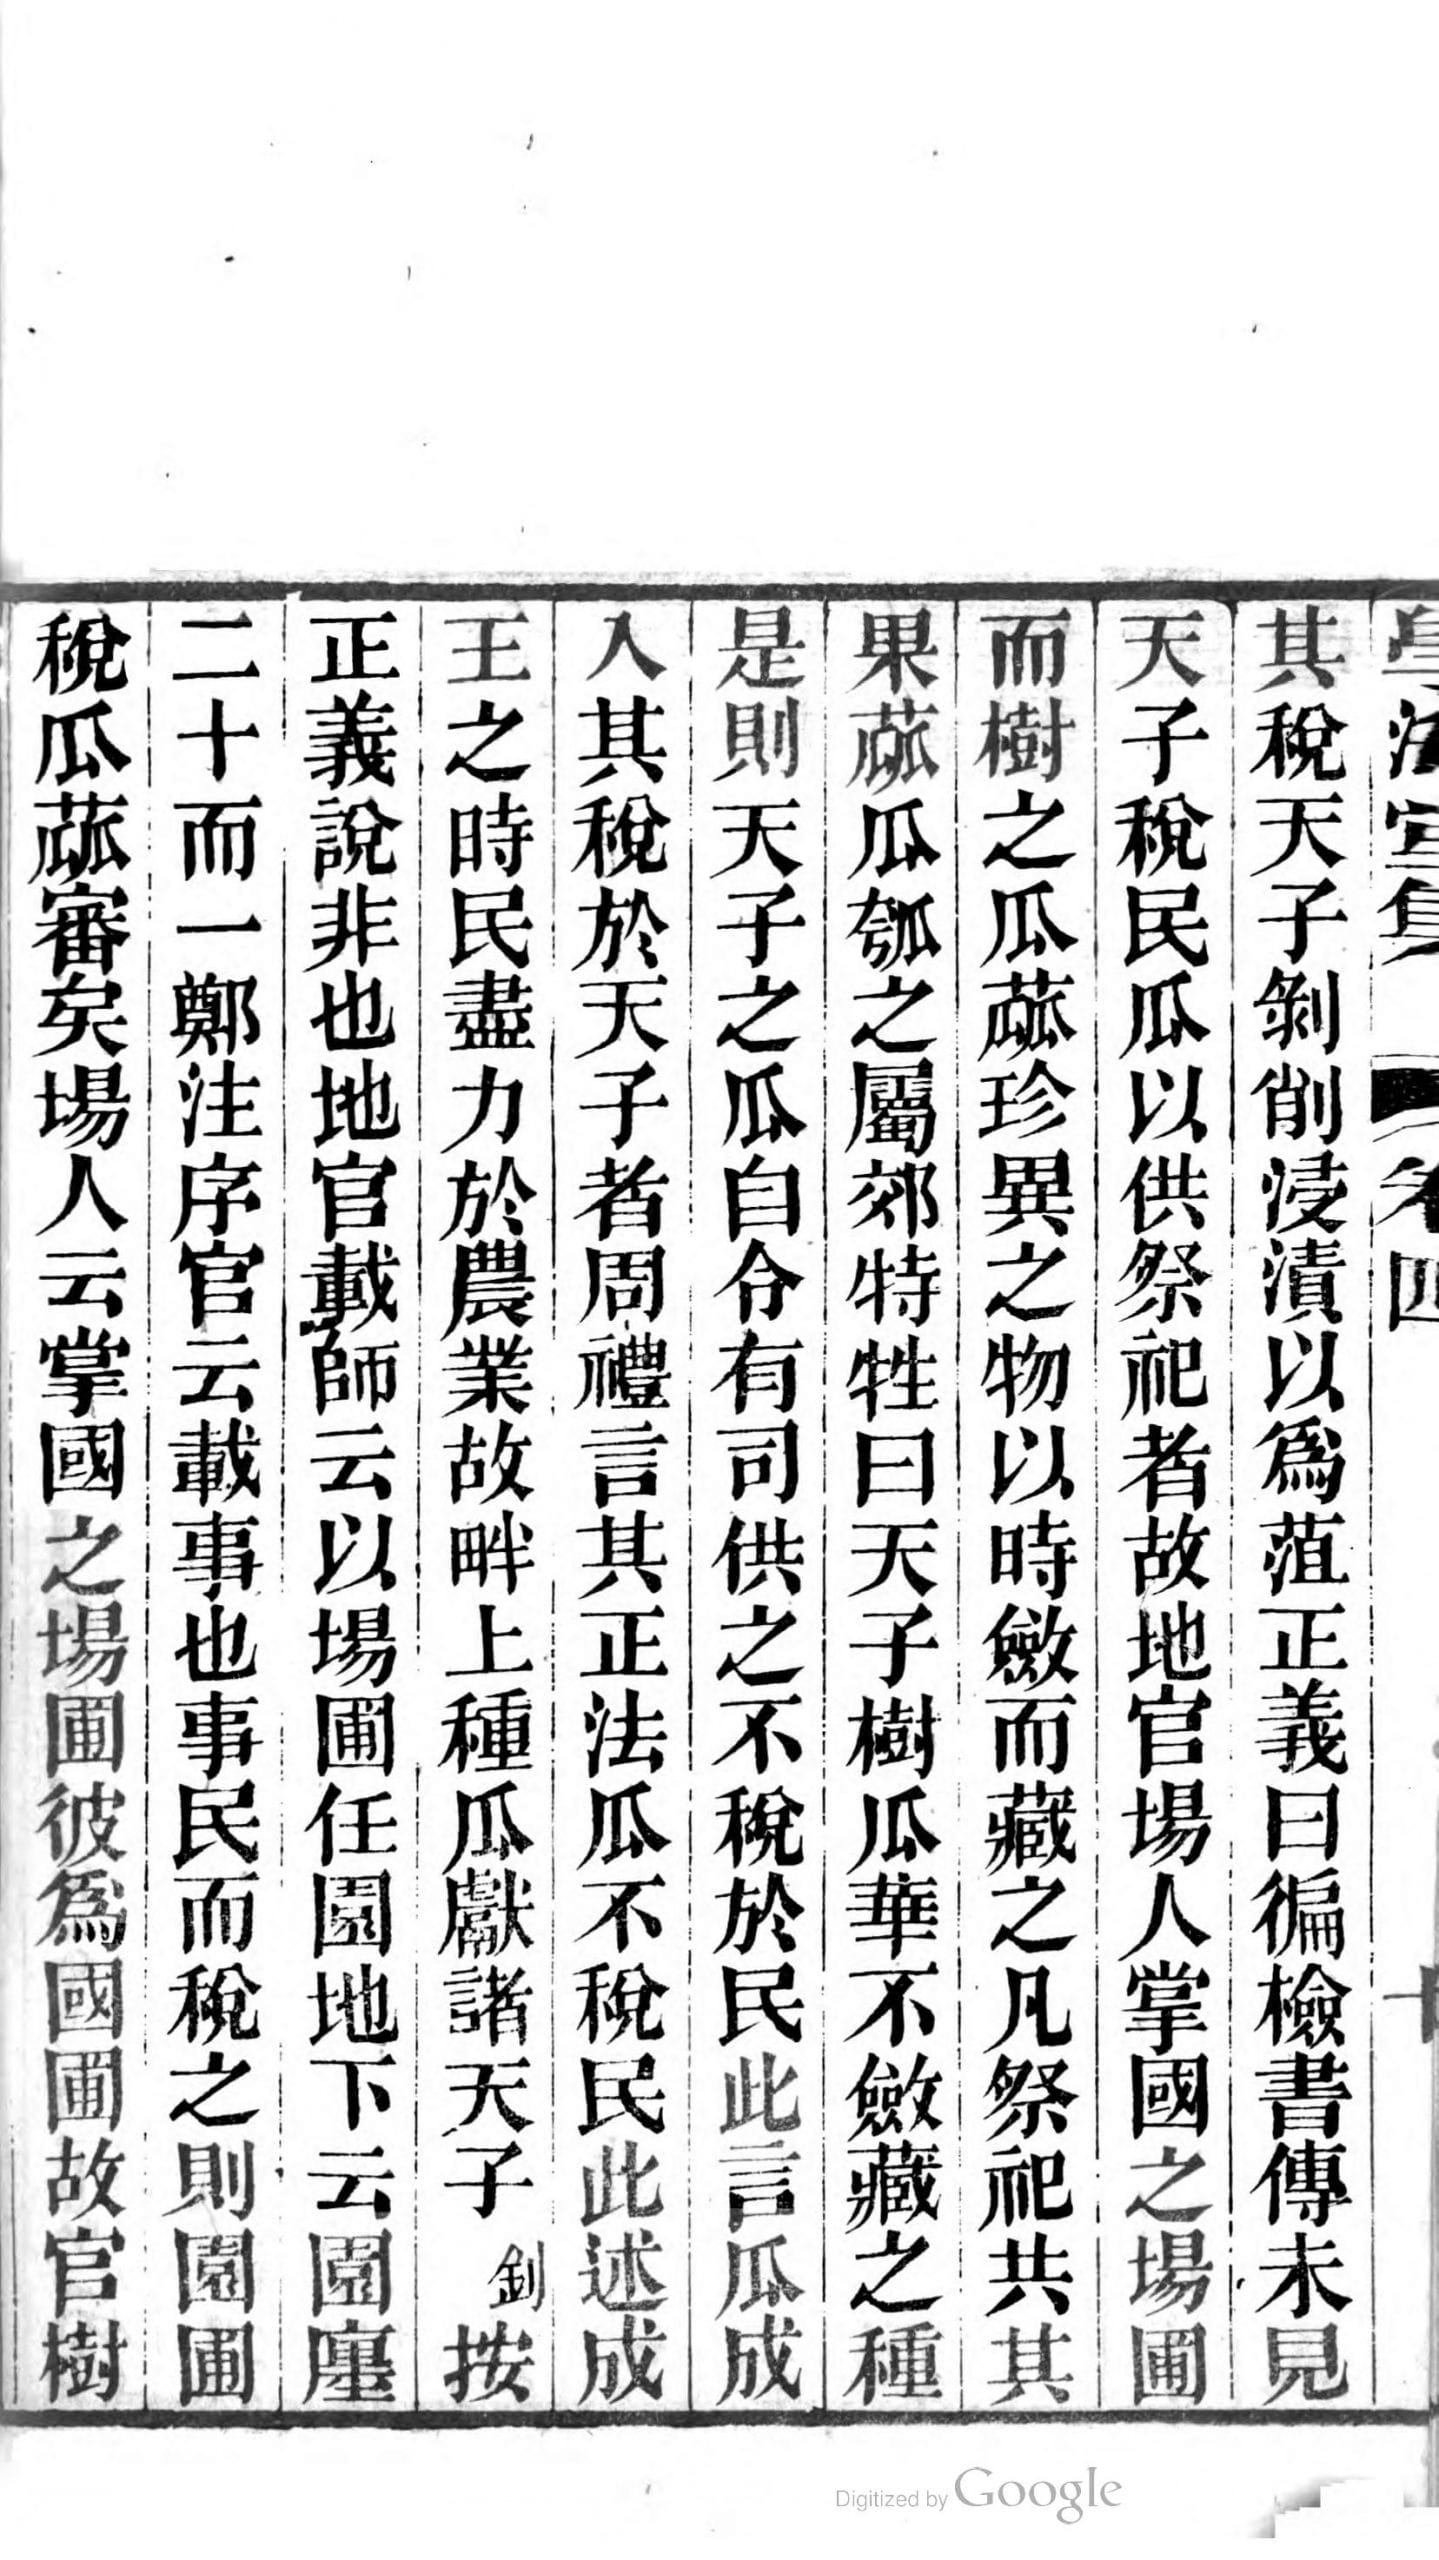 學海堂集 卷四 十
其稅天子剝削浸漬以爲菹正義曰徧檢書傳未見
天子稅民瓜以供祭祀者故地官場人掌國之場圃
而樹之瓜蓏珍異之物以時斂而藏之凡祭祀共其
果蓏瓜瓠之屬郊特牲曰天子樹瓜華不斂藏之種
是則天子之瓜自令有司供之不稅於民此言瓜成
入其稅於天子者周禮言其正法瓜不稅民此述成
王之時民盡力於農業故畔上種瓜獻諸天子 釗按
正義說非也地官載師云以場圃任園地下云園廛
二十而一鄭注序官云載事也事民而稅之則園圃
稅瓜蓏審矣場人云掌國之場圃彼爲國圃故官樹
Digitized by Google